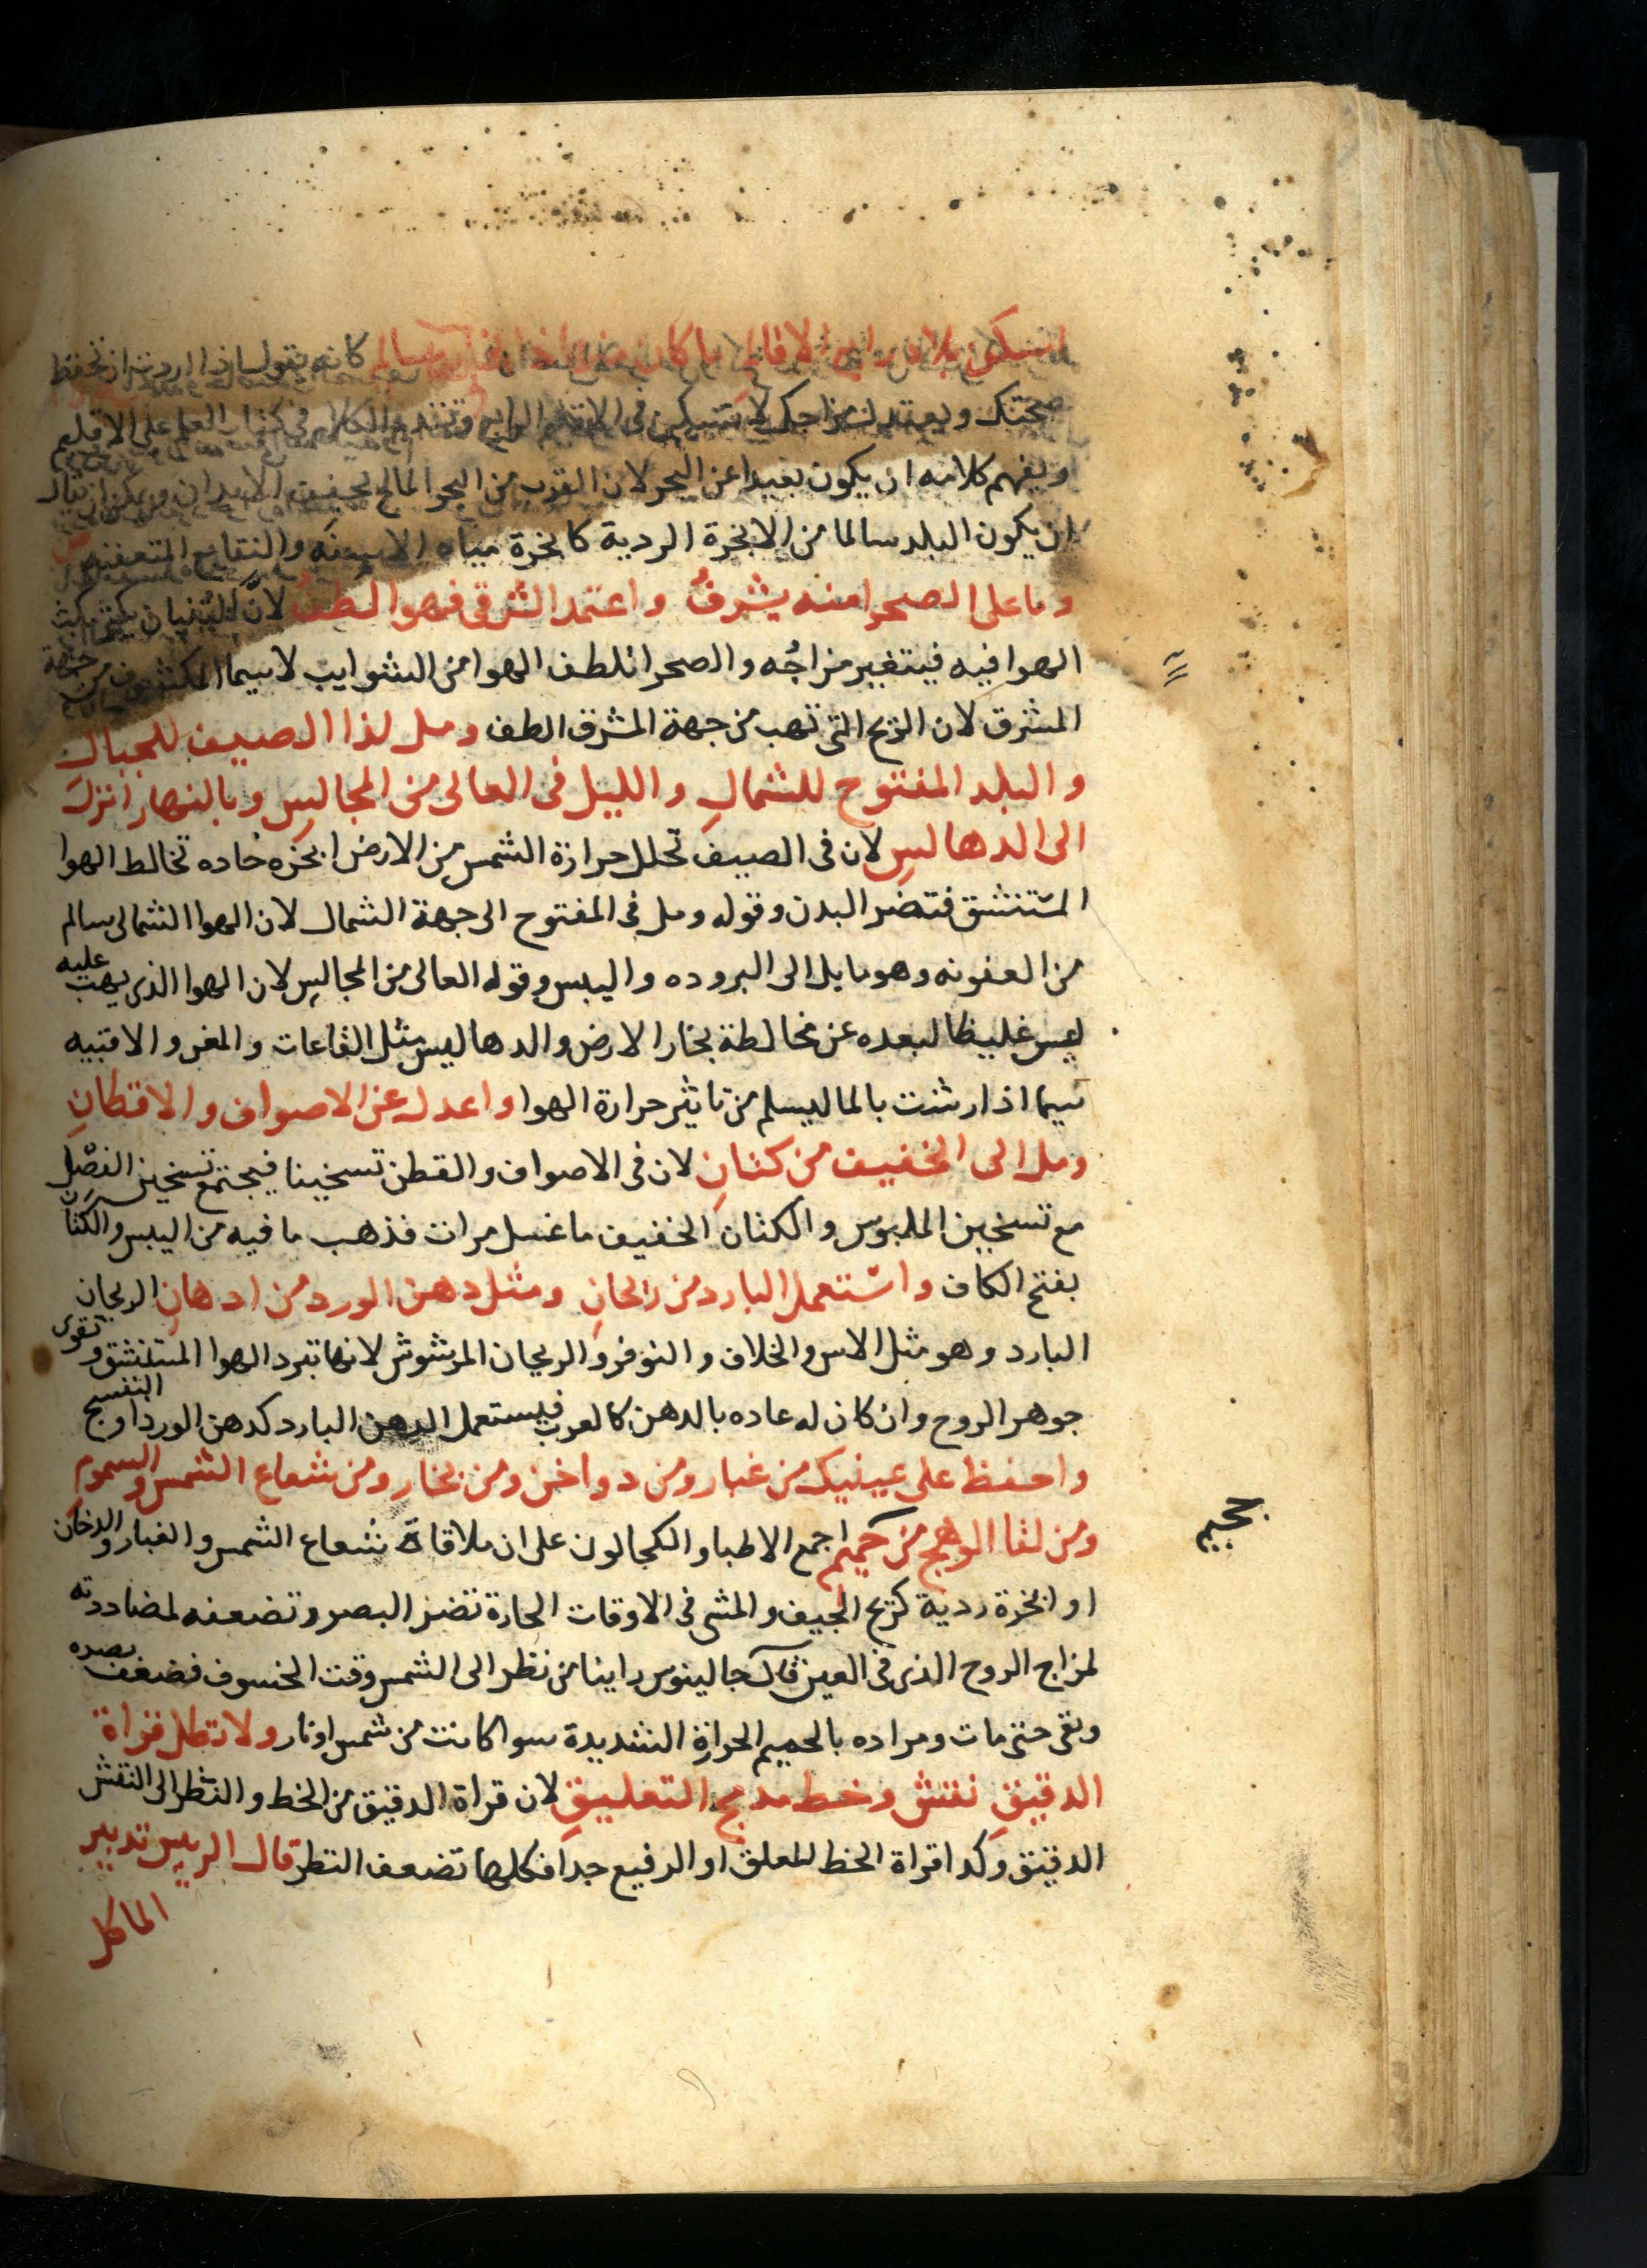 كانه يقول اذا اردت ان تحفظ
صحتك ويعتدل مزاجك فى الاقليم الرابع وتقدم الكلام فى على الاقليم
ويفهم كلامه ان يكون بعيدا عن البحر لان القرب من البحر المالح يجفف الابدان ويمكن ان يقال
ان يكون البلد سالما من الابخرة الردية كابخرة مياه والنقايع المتعفنه
وما على الصحرا منه يشرفُ واعتمد الشرقى فهو الطفُ لان البنيان
الهوا فيه فيتغير مزاجُه والصحرا تلطف الهوا من الشوايب لاسيما المكشوف من جهة
المشرق لان الريح التى تهب من جهة المشرق الطف ومل لذا الصيف للجبالِ
والبلد المفتوح للشمالِ والليل فى العالى من المجالسِ وبالنهار انزل
الى الدهالسِ لان فى الصيف تحلل حرارة الشمس من الارض ابخره حاده تخالط الهوا
المستنشق فتضر البدن وقوله ومل فى المفتوح الى جهة الشمال لان الهوا الشمالى سالم
من العفونه وهو مايل الى البروده واليبس وقوله العالى من المجالس لان الهوا الذى يهب عليه
ليس غليظا لبعده عن مخالطة بخار الارض والدهاليس مثل القاعات والمغر والاقبيه
سيما اذا رشت بالما ليسلم من تاثير حرارة الهوا واعدل عن الاصواف والاقطانِ
ومل الى الخفيف من كتانِ لان فى الاصواف والقطن تسخينا فيجتمع تسخين الفصل
مع تسخين الملبوس والكتان الخفيف ما غسل مرات فذهب ما فيه من اليبس والكتان
بفتح الكاف واستعمل البارد من ريحانِ ومثل دهن الورد من ادهانِ الريحان
البارد وهو مثل الاس والخلاف والنوفر والريحان المرشوش لانها تبرد الهوا المستنشق وتقوى
جوهر الروح وان كان له عاده بالدهن كالعرب فيستعمل الدهن البارد كدهن الورد او البنفسج
واحفظ على عينيك من غبار ومن دواخن ومن بخار ومن شعاع الشمس والسموم
ومن لقا الوهج من حميم اجمع الاطبا والكحالون على ان ملاقاة شعاع الشمس والغبار والدخان
او ابخرة ردية كريح الجيف والمشى فى الاوقات الحارة تضر البصر وتضعفه لمضاددته
لمزاج الروح الذى فى العين قال جالينوس راينا من نظر الى الشمس وقت الخسوف فضعف بصره
وبقى حتى مات ومراده بالحميم الحرارة الشديدة سوا كانت من شمس او نار ولا تطل قراة
الدقيقِ نقش وخط مدمج التعليقِ لان قراة الدقيق من الخط والنظر الى النقش
الدقيق وكدا قراة الخط المعلق او الرفيع جدا فكلها تضعف النظر قال الرييس تدبير
الماكل
حميم